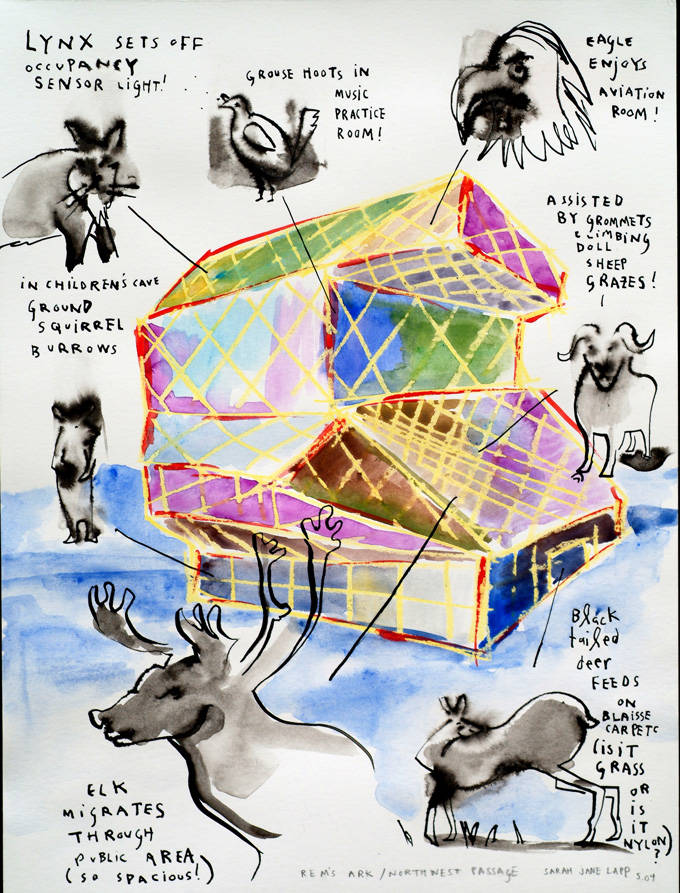 LYNX SETS OFF
OCCUPANCY
SENSOR LIGHT!
GROUSE HOOTS IN
MUSIC
PRACTICE
ROOM!
EAGLE
ENJOYS
AVIATION
ROOM!
ASSISTED
BY GROMMETS
CLIMBING
DOLL
SHEEP
GRAZES!
IN CHILDREN'S CAVE
GROUND
SQUIRREL
BURROWS
Black
tailed
deer
FEEDS
ON
BLAISSE
CARPETS
(IS IT
GRASS
OR
IS
IT
NYLON)
?
ELK
MIGRATES
THROUGH
PUBLIC AREA
(SO SPACIOUS!)
REM'S ARK / NORTHWEST PASSAGE SARAH JANE LAPP 5.04